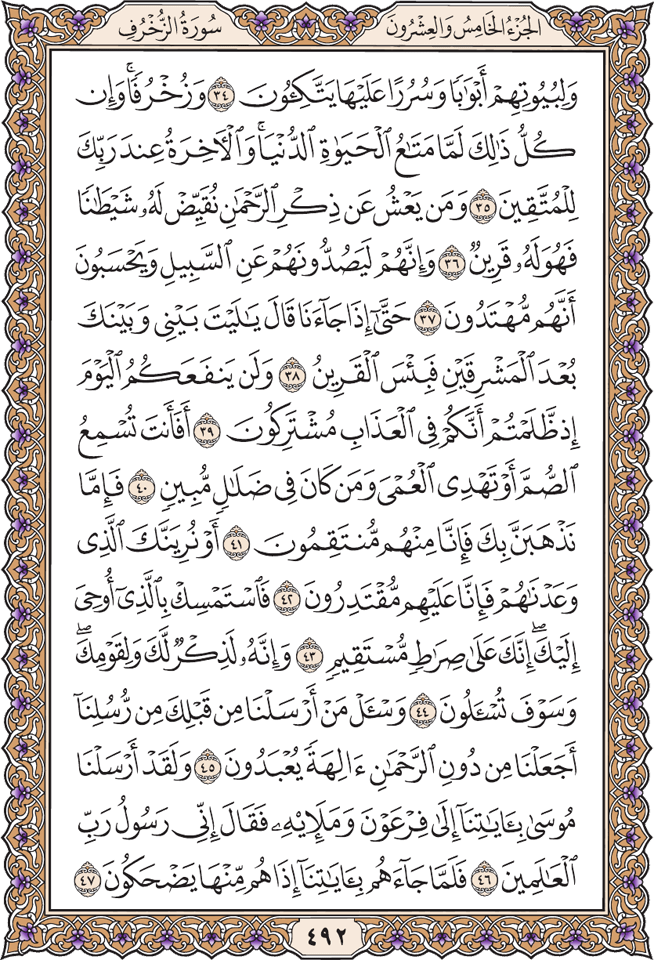 سُورَةُ الزُّخْرُفِ
الجُزْءُ الخَامِسُ وَالعِشْرُونَ
وَلِبُيُوتِهِمْ أَبْوَٰبًا وَسُرُرًا عَلَيْهَا يَتَّكِـُٔونَ ٣٤ وَزُخْرُفًا ۚ وَإِن
كُلُّ ذَٰلِكَ لَمَّا مَتَـٰعُ ٱلْحَيَوٰةِ ٱلدُّنْيَا ۚ وَٱلْـَٔاخِرَةُ عِندَ رَبِّكَ
لِلْمُتَّقِينَ ٣٥ وَمَن يَعْشُ عَن ذِكْرِ ٱلرَّحْمَـٰنِ نُقَيِّضْ لَهُۥ شَيْطَـٰنًا
فَهُوَ لَهُۥ قَرِينٌ ٣٦ وَإِنَّهُمْ لَيَصُدُّونَهُمْ عَنِ ٱلسَّبِيلِ وَيَحْسَبُونَ
أَنَّهُم مُّهْتَدُونَ ٣٧ حَتَّىٰٓ إِذَا جَآءَنَا قَالَ يَـٰلَيْتَ بَيْنِى وَبَيْنَكَ
بُعْدَ ٱلْمَشْرِقَيْنِ فَبِئْسَ ٱلْقَرِينُ ٣٨ وَلَن يَنفَعَكُمُ ٱلْيَوْمَ
إِذ ظَّلَمْتُمْ أَنَّكُمْ فِى ٱلْعَذَابِ مُشْتَرِكُونَ ٣٩ أَفَأَنتَ تُسْمِعُ
ٱلصُّمَّ أَوْ تَهْدِى ٱلْعُمْىَ وَمَن كَانَ فِى ضَلَـٰلٍ مُّبِينٍ ٤٠ فَإِمَّا
نَذْهَبَنَّ بِكَ فَإِنَّا مِنْهُم مُّنتَقِمُونَ ٤١ أَوْ نُرِيَنَّكَ ٱلَّذِى
وَعَدْنَـٰهُمْ فَإِنَّا عَلَيْهِم مُّقْتَدِرُونَ ٤٢ فَٱسْتَمْسِكْ بِٱلَّذِىٓ أُوحِىَ
إِلَيْكَ ۖ إِنَّكَ عَلَىٰ صِرَٰطٍ مُّسْتَقِيمٍ ٤٣ وَإِنَّهُۥ لَذِكْرٌ لَّكَ وَلِقَوْمِكَ ۖ
وَسَوْفَ تُسْـَٔلُونَ ٤٤ وَسْـَٔلْ مَنْ أَرْسَلْنَا مِن قَبْلِكَ مِن رُّسُلِنَآ
أَجَعَلْنَا مِن دُونِ ٱلرَّحْمَـٰنِ ءَالِهَةً يُعْبَدُونَ ٤٥ وَلَقَدْ أَرْسَلْنَا
مُوسَىٰ بِـَٔايَـٰتِنَآ إِلَىٰ فِرْعَوْنَ وَمَلَإِي۟هِۦ فَقَالَ إِنِّى رَسُولُ رَبِّ
ٱلْعَـٰلَمِينَ ٤٦ فَلَمَّا جَآءَهُم بِـَٔايَـٰتِنَآ إِذَا هُم مِّنْهَا يَضْحَكُونَ ٤٧
٤٩٢